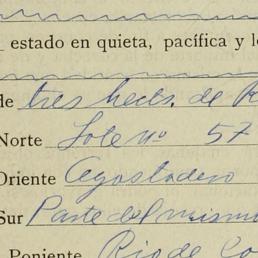 estado en quieta, pacífica y
de tres hects. de
Norte Lote nº 57
Oriente Agostadero
Sur Parte del mismo
Poniente Rio de